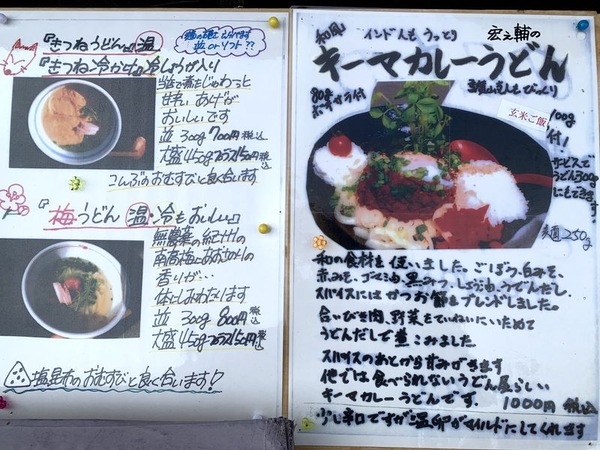 『きつねうどん』温
『きつね冷かけ』冷しょうが入り
麺の硬さえらべます
並 or ソフト??
当店で煮た じゅわっと
甘い あげが
おいしいです
並 300g 700円税込
大盛450gプラス150円税込
こんぶのおむすびと良く合います
『梅うどん 温・冷もおいしい』
無農薬の紀州の
南高梅とあおさのりの
香りが…
体にしみわたります
並 300g 800円税込
大盛450gプラス150円税込
塩昆布のおむすびと良く合います!
和風 インド人も うっとり 宏之輔の
キーマカレーうどん
玄米ご飯
100g
付!
サービスで
うどん300g
にもできます
麺 250g
和の食材を使いました。ごぼう、白みそ、
赤みそ、ゴマミソ、黒みつ、しょう油、うどんだし、
スパイスにはかつお節をブレンドしました。
合いびき肉、野菜をていねいにいためて
うどんだしで煮こみました。
スパイスのあとから甘みがきます
他では食べられないうどん屋らしい
キーマカレーうどんです。 1000円 税込
少し辛口ですが温卵がマイルドにしてくれます